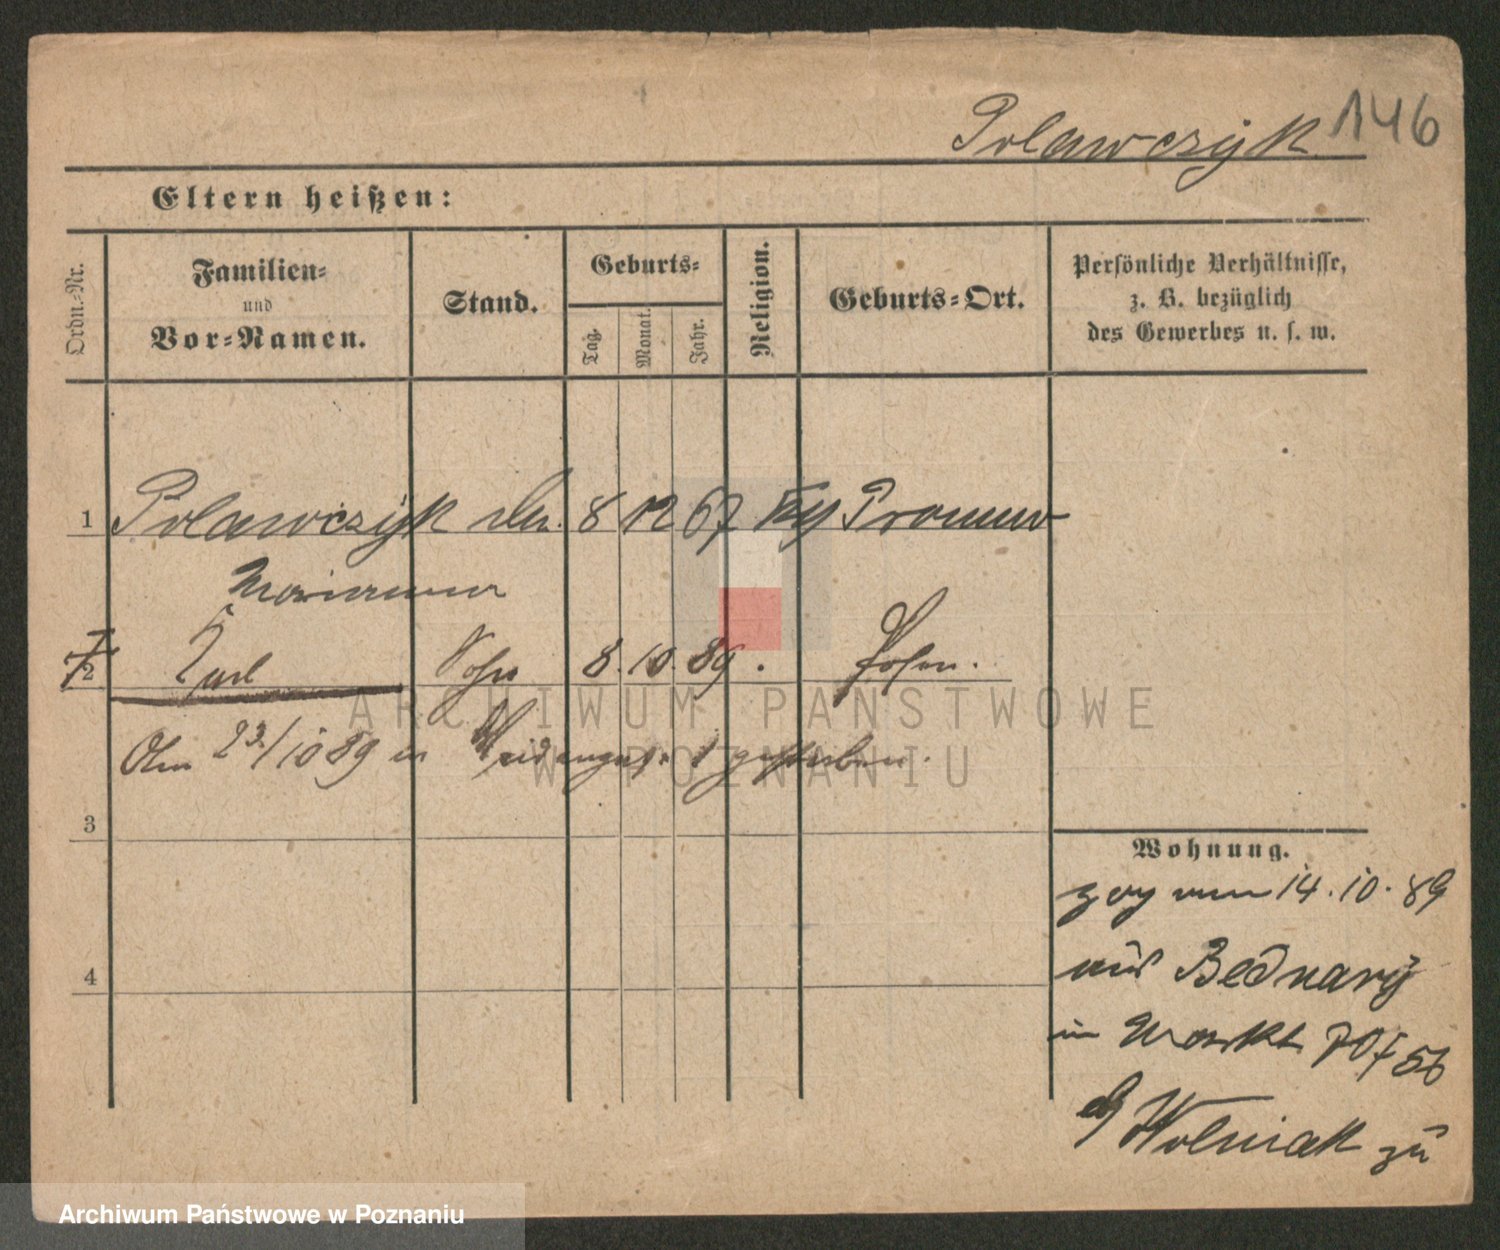 Polawczyk 146
Eltern heißen:
Ordn.-Nr.
Familien-
und
Vor-Namen.
Stand.
Geburts-
Tag.
Monat.
Jahr.
Religion.
Geburts-Ort.
Persönliche Verhältnisse,
z. B. bezüglich
des Gewerbes u. s. w.
1 Polawczyk 8 12 67
Marianna
2 Karl Sohn 8. 10. 89. Posen.
Am 23/10 89 in gestorben.
3
4
Wohnung.
zog am 14. 10. 89
aus Bednary
in Markt 56
Wolniak zu
ARCHIWUM PAŃSTWOWE
W POZNANIU
Archiwum Państwowe w Poznaniu